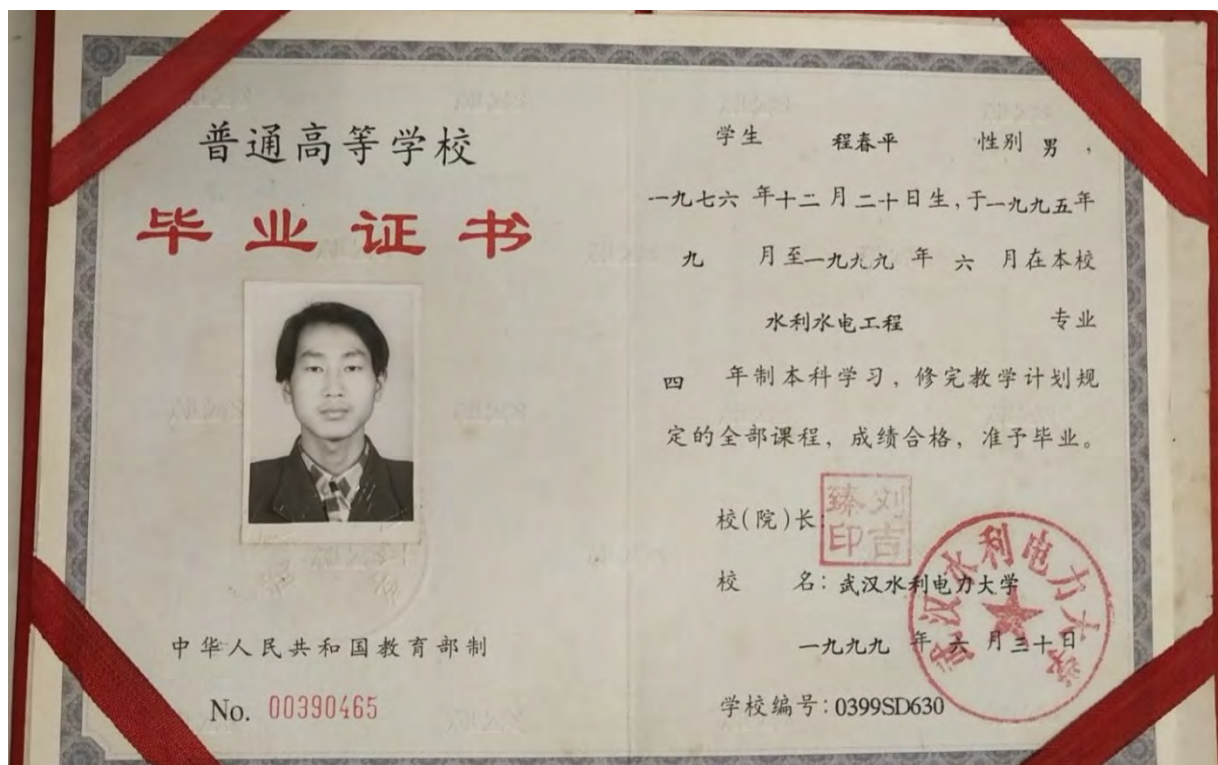 普通高等学校
毕业证书
中华人民共和国教育部制
No. 00390465
学生 程春平 性别 男，
一九七六 年十二月二十日生，于一九九五年
九 月至一九九九 年 六 月在本校
水利水电工程 专业
四 年制本科学习，修完教学计划规
定的全部课程，成绩合格，准予毕业。
校(院)长：
刘吉臻印
校 名：武汉水利电力大学
武汉水利电力大学
一九九九 年 六 月三十日
学校编号：0399SD630